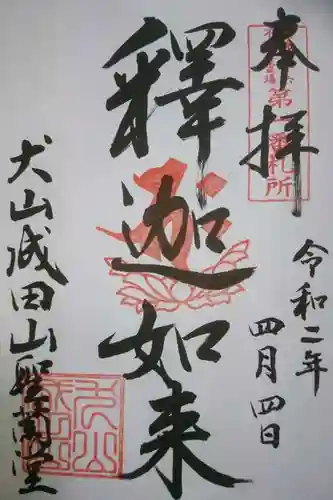 奉拝
第一番札所
令和二年
四月四日
釋迦如来
犬山成田山聖蘭堂